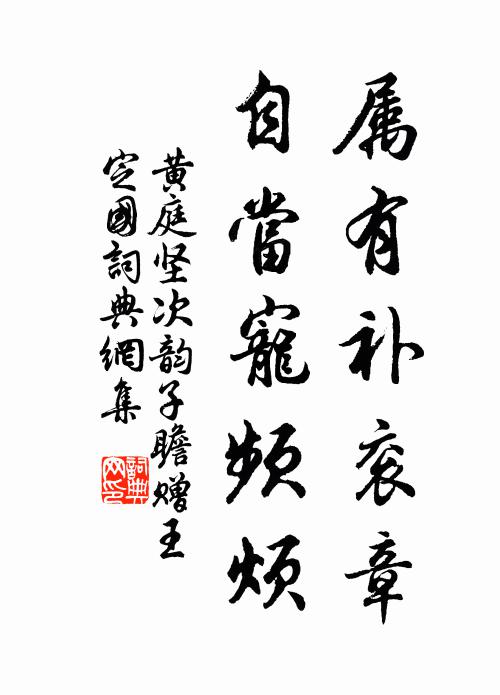 属有补衮章
自當寵頻烦
黄庭坚次韵子瞻赠王
定國詞典網集
詞典
网印